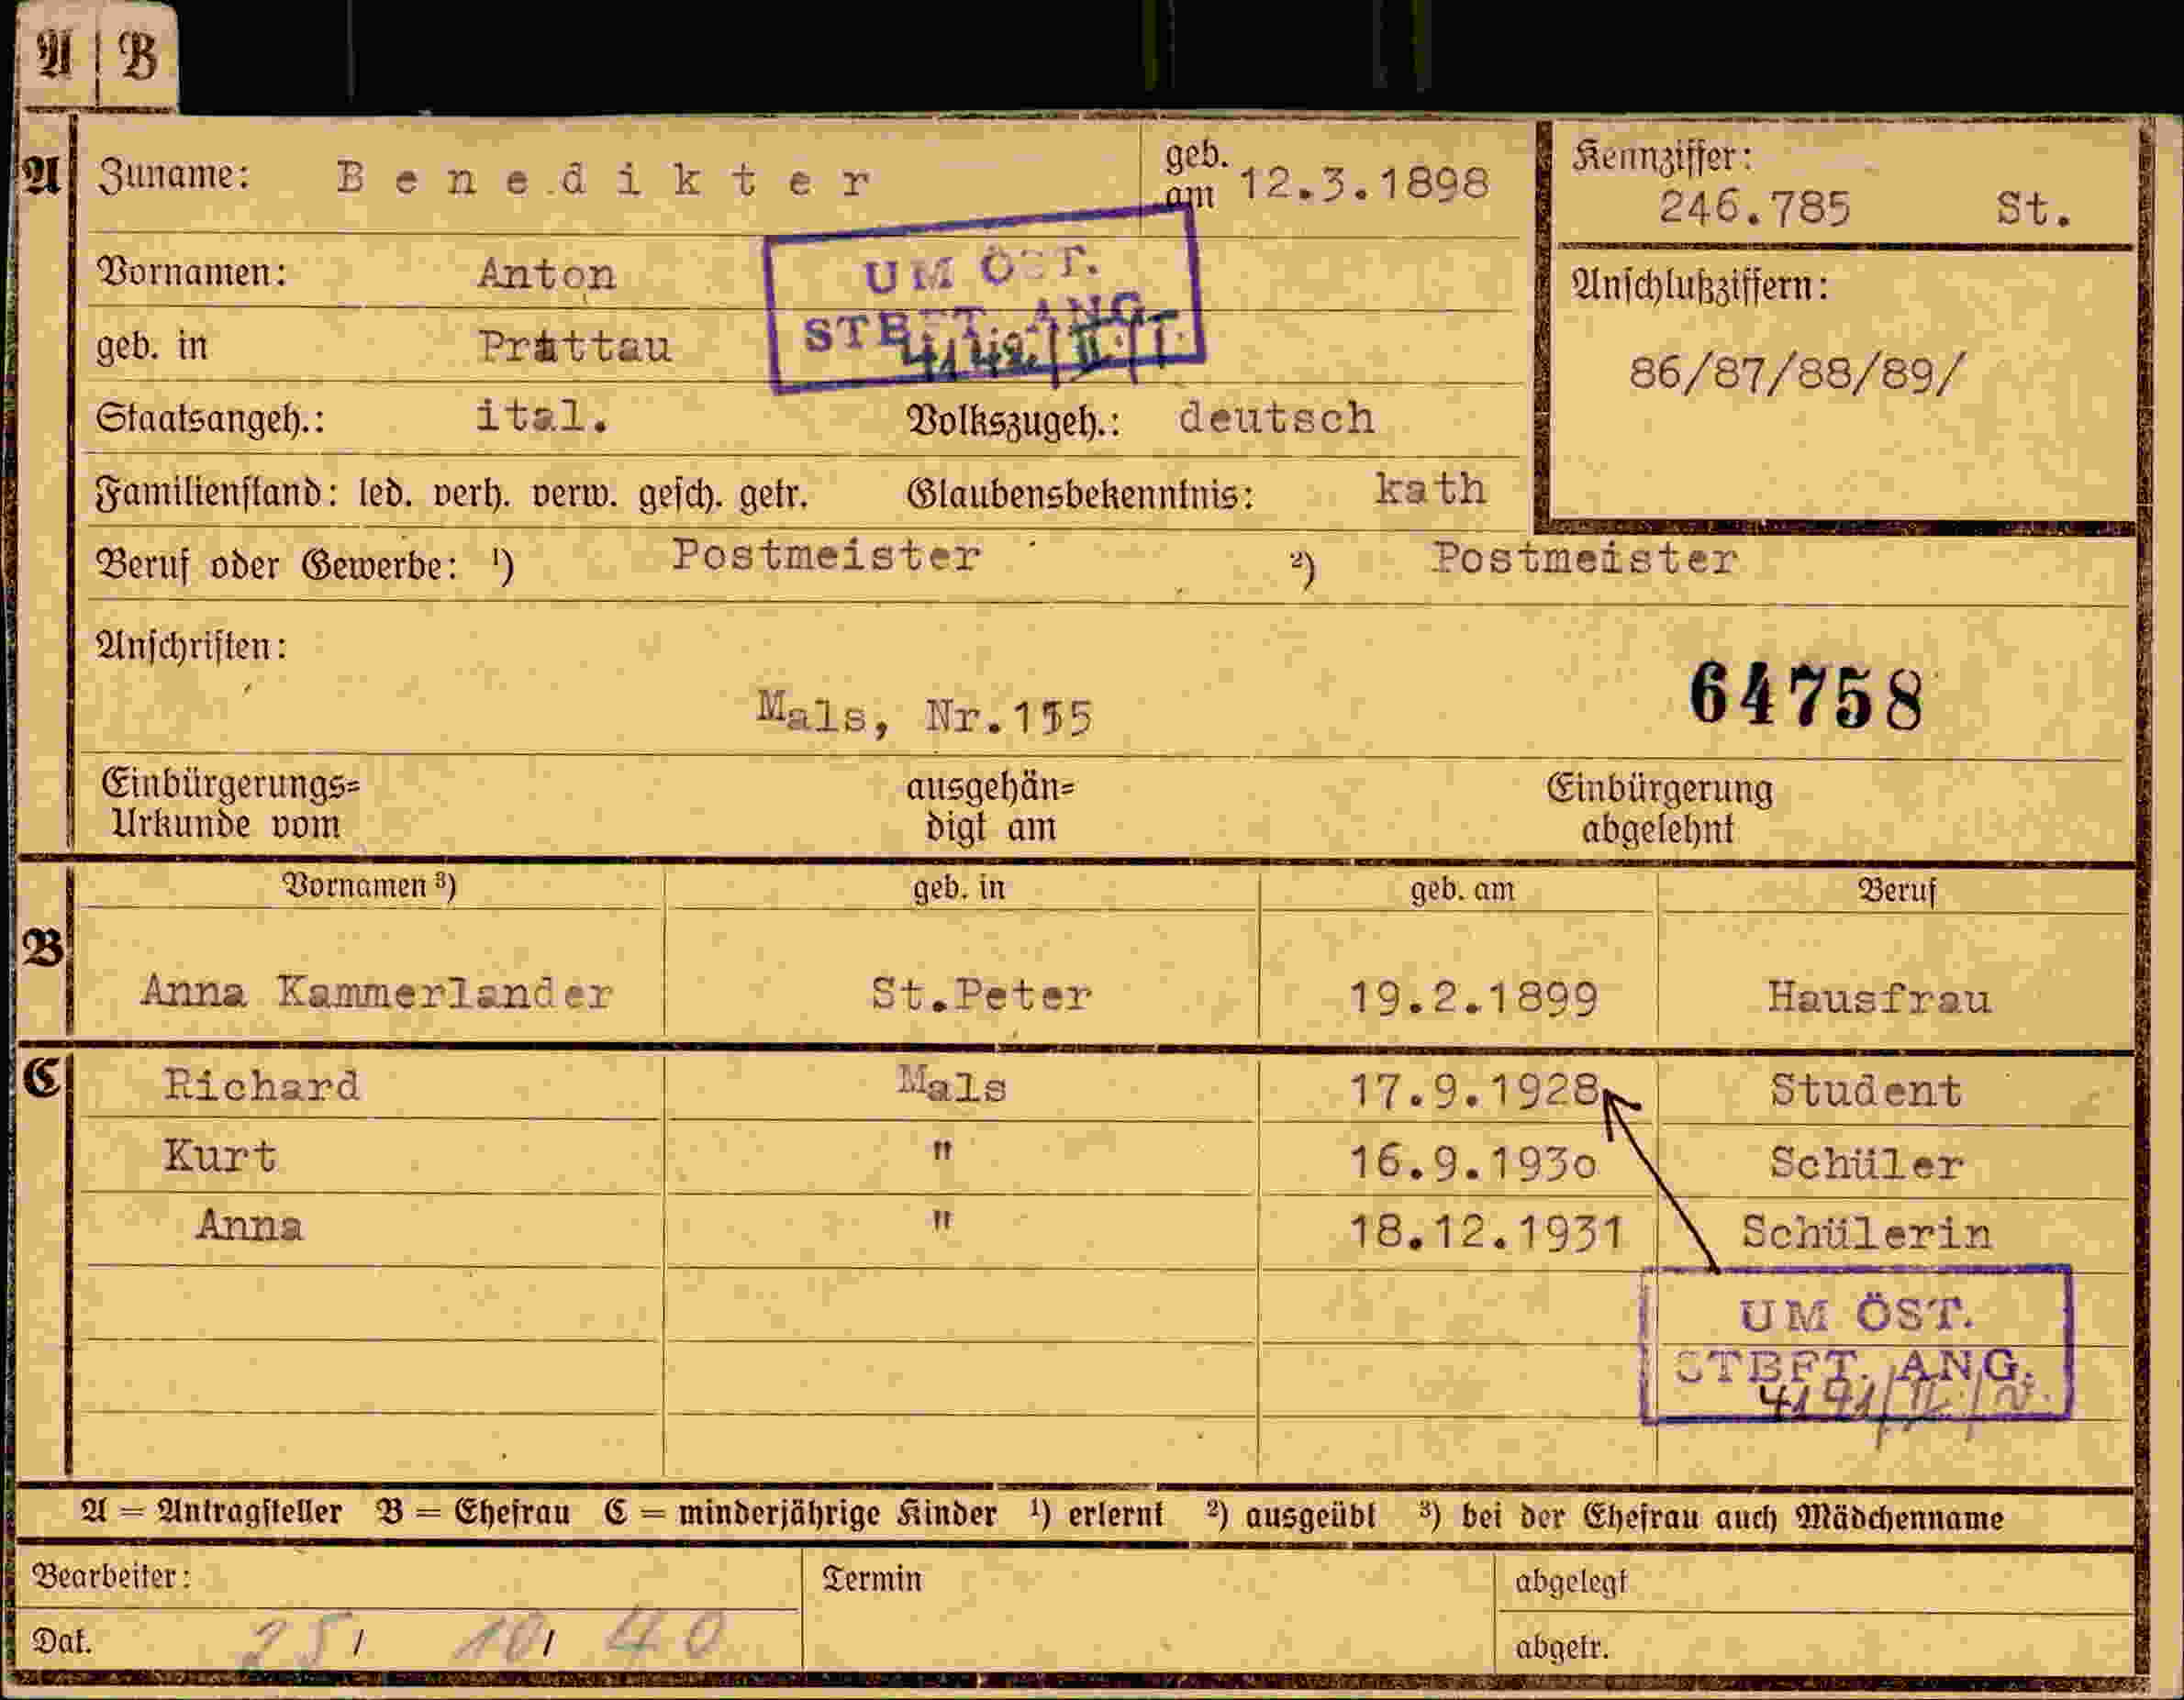 A B
A Zuname: Benedikter geb. am 12.3.1898
Kennziffer:
246.785 St.
Vornamen: Anton
UM ÖST.
STBFT. ANG.
geb. in
Anschlußziffern:
86/87/88/89/
Staatsangeh.: ital. Volkszugeh.: deutsch
Familienstand: led. verh. verw. gesch. getr. Glaubensbekenntnis: kath
Beruf oder Gewerbe: ¹) Postmeister ²) Postmeister
Anschriften:
64758
Mals, Nr.155
Einbürgerungs= Urkunde vom ausgehän= digt am Einbürgerung abgelehnt
Vornamen ³) geb. in geb. am Beruf
B Anna Kammerlander St.Peter 19.2.1899 Hausfrau
C Richard Mals 17.9.1928 Student
Kurt " 16.9.1930 Schüler
Anna " 18.12.1931 Schülerin
UM ÖST.
STBFT. ANG.
A = Antragsteller B = Ehefrau C = minderjährige Kinder ¹) erlernt ²) ausgeübt ³) bei der Ehefrau auch Mädchenname
Bearbeiter: Termin abgelegt
Dat. 25/ 10/ 40 abgetr.